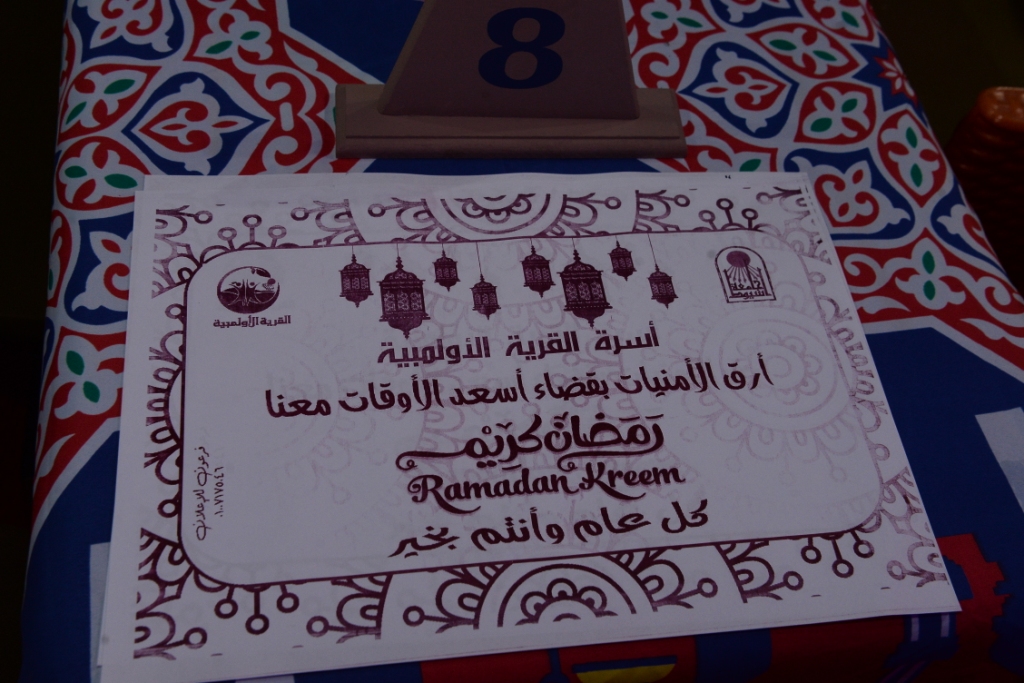 8
القرية الأولمبية
جامعة أسيوط
أسرة القرية الأولمبية
أرق الأمنيات بقضاء أسعد الأوقات معنا
رمضان كريم
Ramadan Kreem
كل عام وأنتم بخير
فرعون للإعلان